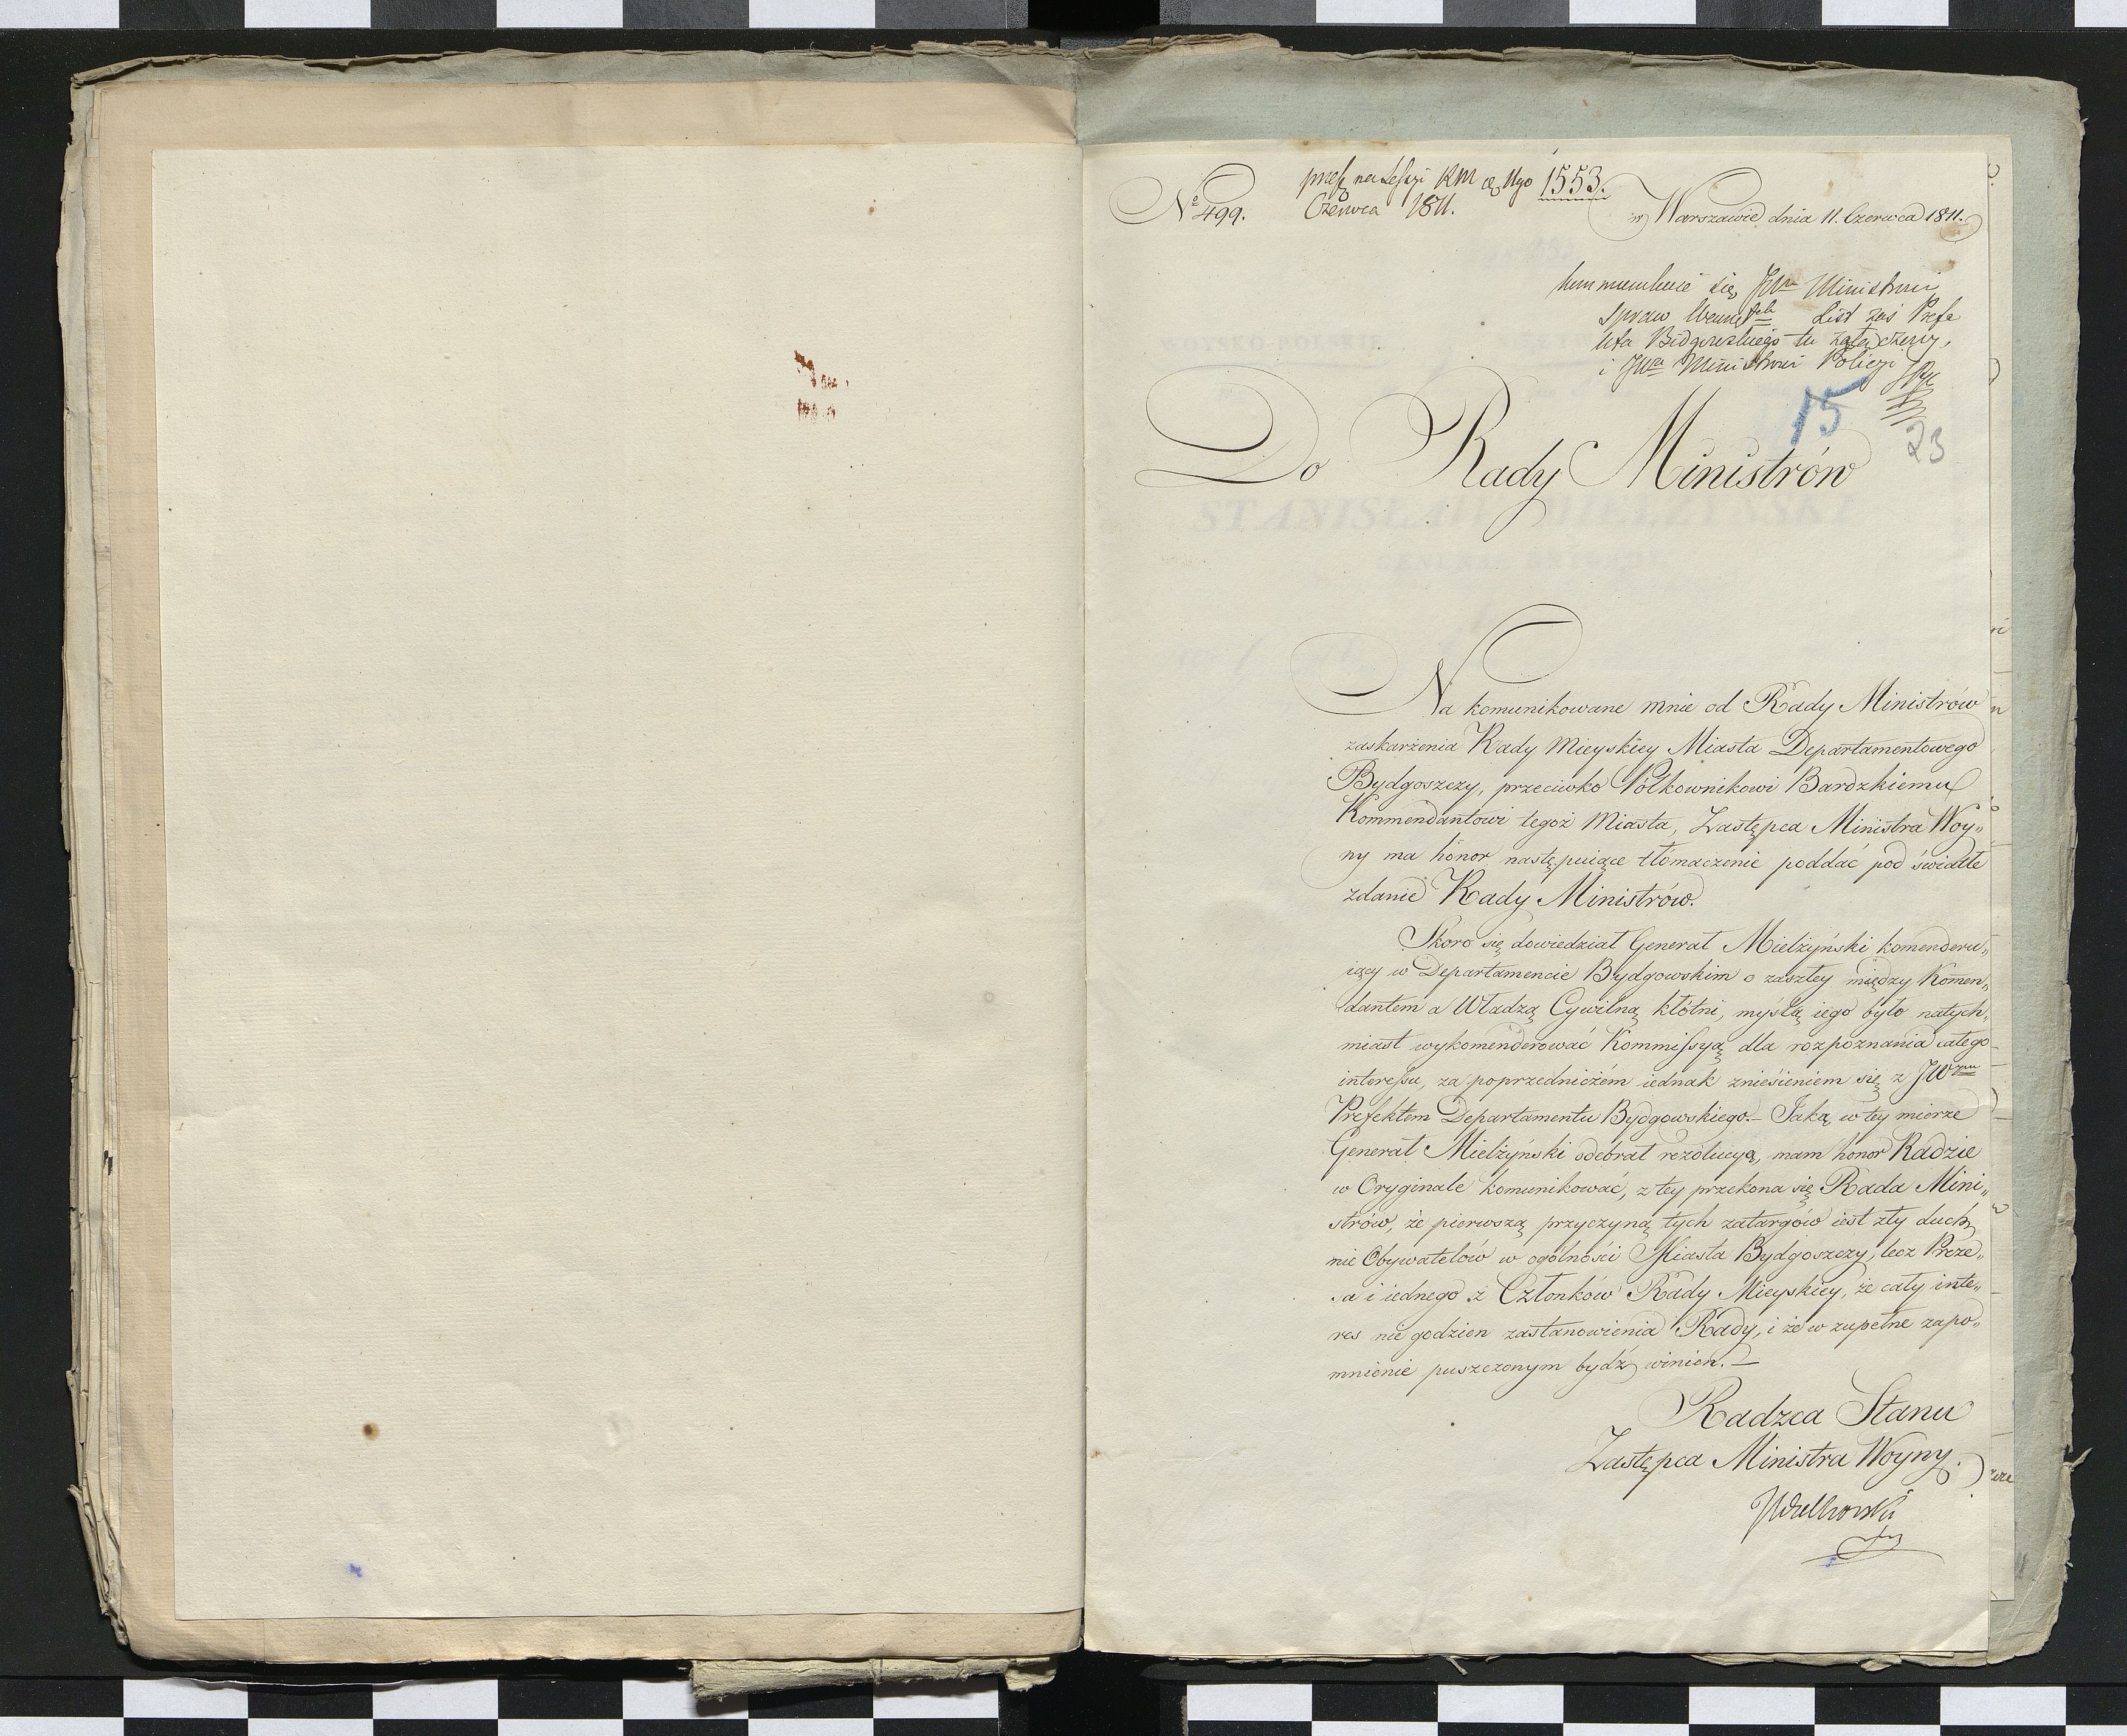 No 499.
na Sessyi RM d. 11go 1553.
Czerwca 1811.
w Warszawie dnia 11. Czerwca 1811.
się JWu Ministrowi
Spraw List zaś Prefe
kta Bidgowskiego tu załączony,
i JWu Ministrowi Policyi
15
23
Do Rady Ministrów
WOYSKO POLSKIE
Na komunikowane mnie od Rady Ministrów
zaskarżenia Rady Mieyskiey Miasta Departamentowego
Bydgoszczy, przeciwko Półkownikowi Bardzkiemu
Kommendantowi tegoż Miasta, Zastępca Ministra Woy„
ny ma honor następuiące tłómaczenie poddać pod światłe
zdanie Rady Ministrów.
Skoro się dowiedział Generał Mielżyński komenderu„
iący w Departamencie Bydgowskim o zaszłey między Komen„
dantem a Władzą Cywilną kłótni, myślą iego było natych„
miast wykomenderować Kommissyą dla rozpoznania całego
interessu, za poprzedniczém iednak zniesieniem się z JWym
Prefektem Departamentu Bydgowskiego.– Jaką w tey mierze
Generał Mielżyński odebrał rezolucyą, mam honor Radzie
w Oryginale komunikować, z tey przekona się Rada Mini„
strów, że pierwszą przyczyną tych zatargów iest zły duch,
nie Obywatelów w ogólności Miasta Bydgoszczy, lecz Preze„
sa i iednego z Członków Rady Mieyskiey, że cały inte„
res nie godzien zastanowienia Rady, i że w zupełne zapo„
mnienie puszczonym bydź winien.–
Radzca Stanu
Zastępca Ministra Woyny.
JWielhorski